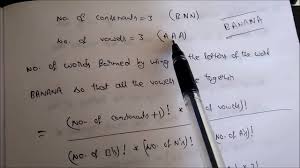 No. of consonants = 3 (BNN)
BANANA
No. of vowels = 3 (AAA)
No. of words formed by using the letters of the word
BANANA so that all the vowels are together
= (No. of consonants + 1)! * of vowels)!
(No. of B's)! * (No. of N's)! * of A's)!